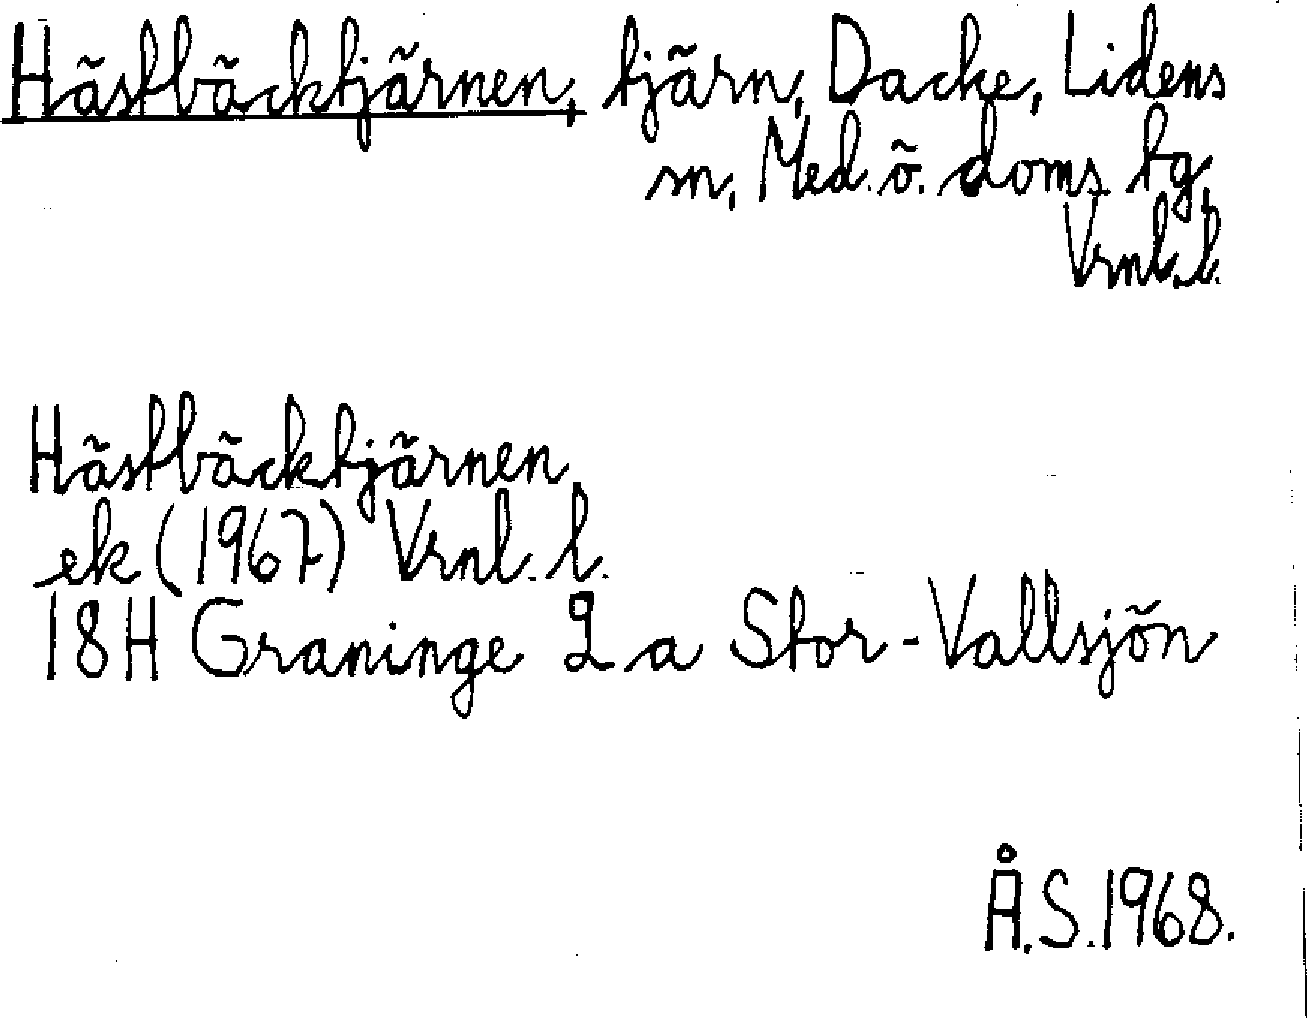 Hästbäcktjärnen, tjärn, Dacke, Lidens
sn, Med. ö. doms. tg,
Vrnl. l.
Hästbäcktjärnen,
ek (1967) Vrnl. l.
18H Graninge 2 a Stor-Vallsjön
Å.S. 1968.